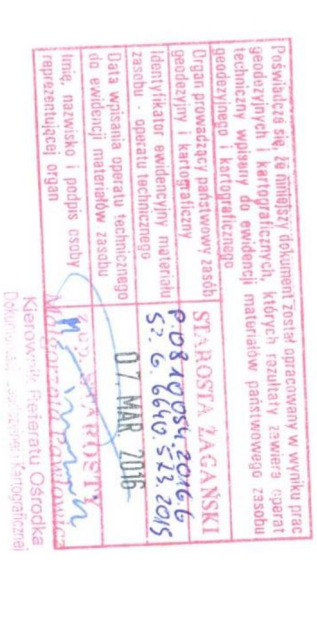 Poświadcza się, że niniejszy dokument został opracowany w wyniku prac
geodezyjnych i kartograficznych, których rezultaty zawiera operat
techniczny wpisany do ewidencji materiałów państwowego zasobu
geodezyjnego i kartograficznego
Organ prowadzący państwowy zasób
geodezyjny i kartograficzny
STAROSTA ŻAGAŃSKI
Identyfikator ewidencyjny materiału
zasobu - operatu technicznego
P.0810.054.2016.6
SZ.6.6640.573.2015
Data wpisania operatu technicznego
do ewidencji materiałów zasobu
07. MAR. 2016
Imię, nazwisko i podpis osoby
reprezentującej organ
STAROSTY
Małgorzata Pawłowicz
Kierownik Referatu Ośrodka
Kartograficznej